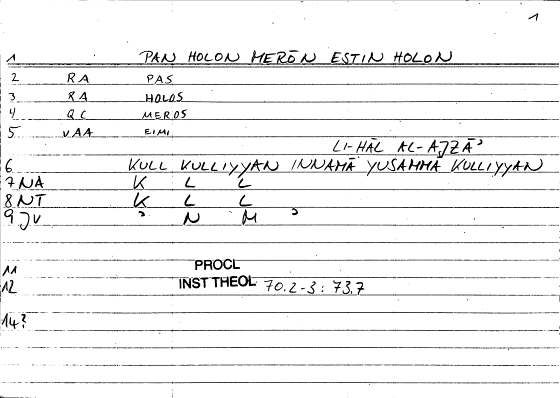 1
1 PAN HOLON MERŌN ESTIN HOLON
2 RA PAS
3 RA HOLOS
4 QC MEROS
5 VAA EIMI
LI-HĀL AL-AJZĀʾ
6 KULL KULLIYYAN INNAMĀ YUSAMMĀ KULLIYYAN
7 NA K L L
8 NT K L L
9 JV ʾ N M ʾ
11 PROCL
12 INST THEOL 70.2-3 : 73.7
14?